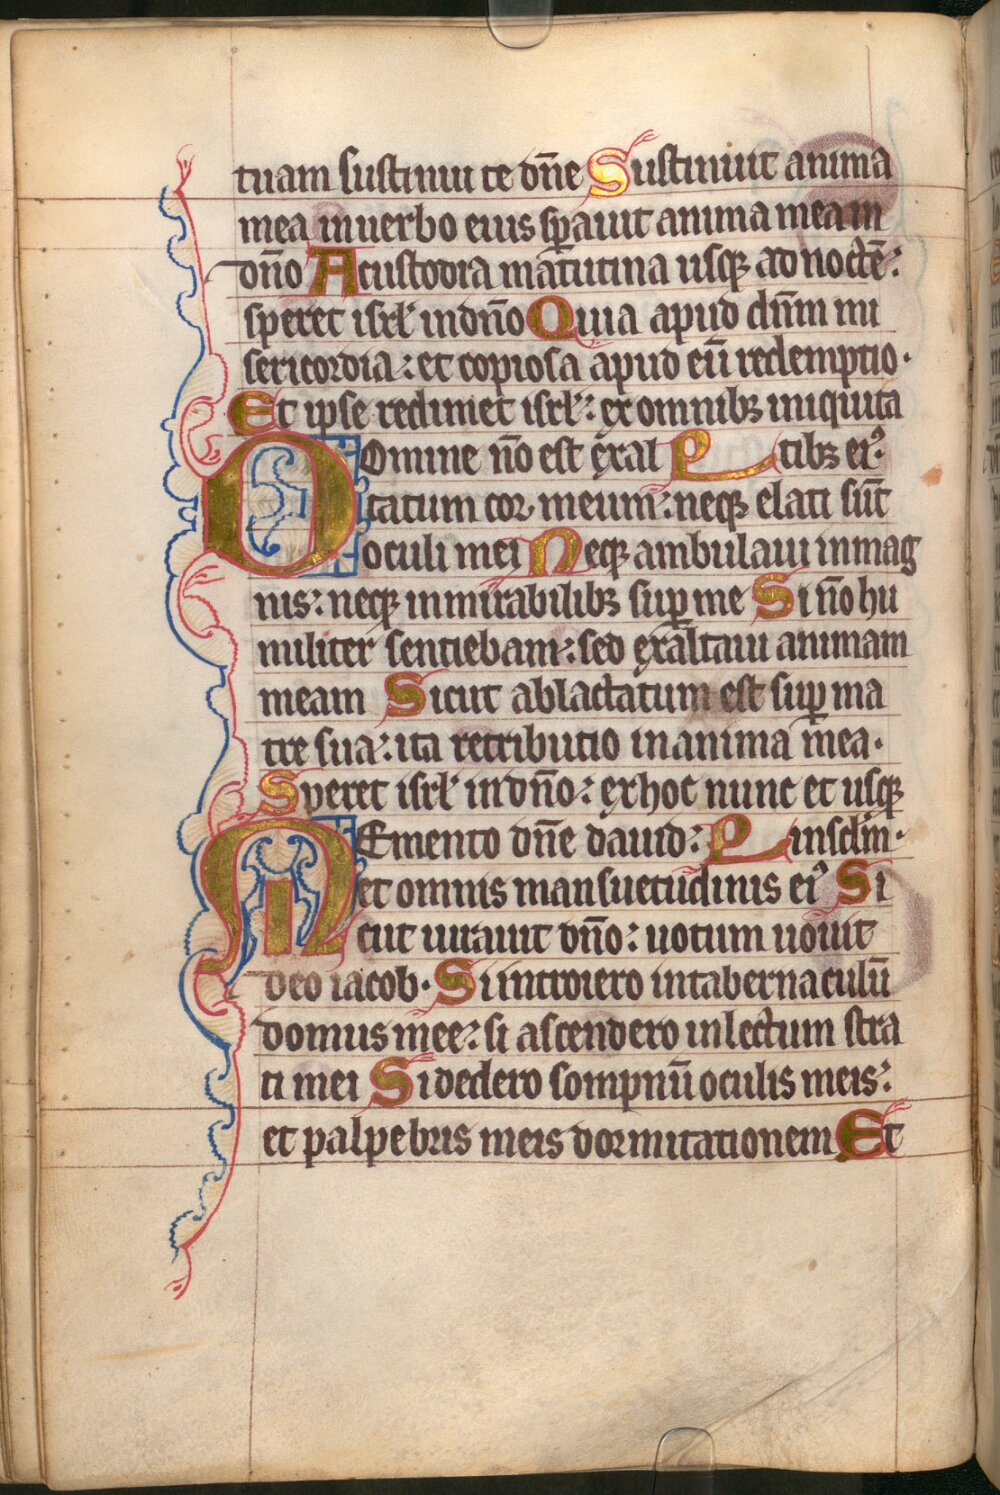 tuam sustinui te dñe Sustinuit anima
mea in uerbo eius spauit anima mea in
dño A custodia matutina usq; ad noctē:
speret isrl in dño Quia apud dnm mi
sericordia: et copiosa apud eū redemptio.
Et ipse redimet isrl: ex omnibz iniquita
Domine ño est exal P tibz ei9:
tatum cor meum: neq; elati sūt
oculi mei Neq; ambulaui in mag
nis: neq; in mirabilibz sup me Si ño hu
militer sentiebam: sed exaltaui animam
meam Sicut ablactatum est sup ma
tre sua: ita retributio in anima mea.
Speret isrl in dño: ex hoc nunc et usq;
MEmento dñe dauid: P in sclm.
et omnis mansuetudinis ei9 Si
cut iurauit dño: uotum uouit
deo iacob. Si introiero in tabernaculū
domus mee: si ascendero in lectum stra
ti mei Si dedero sompnū oculis meis:
et palpebris meis dormitationem Et